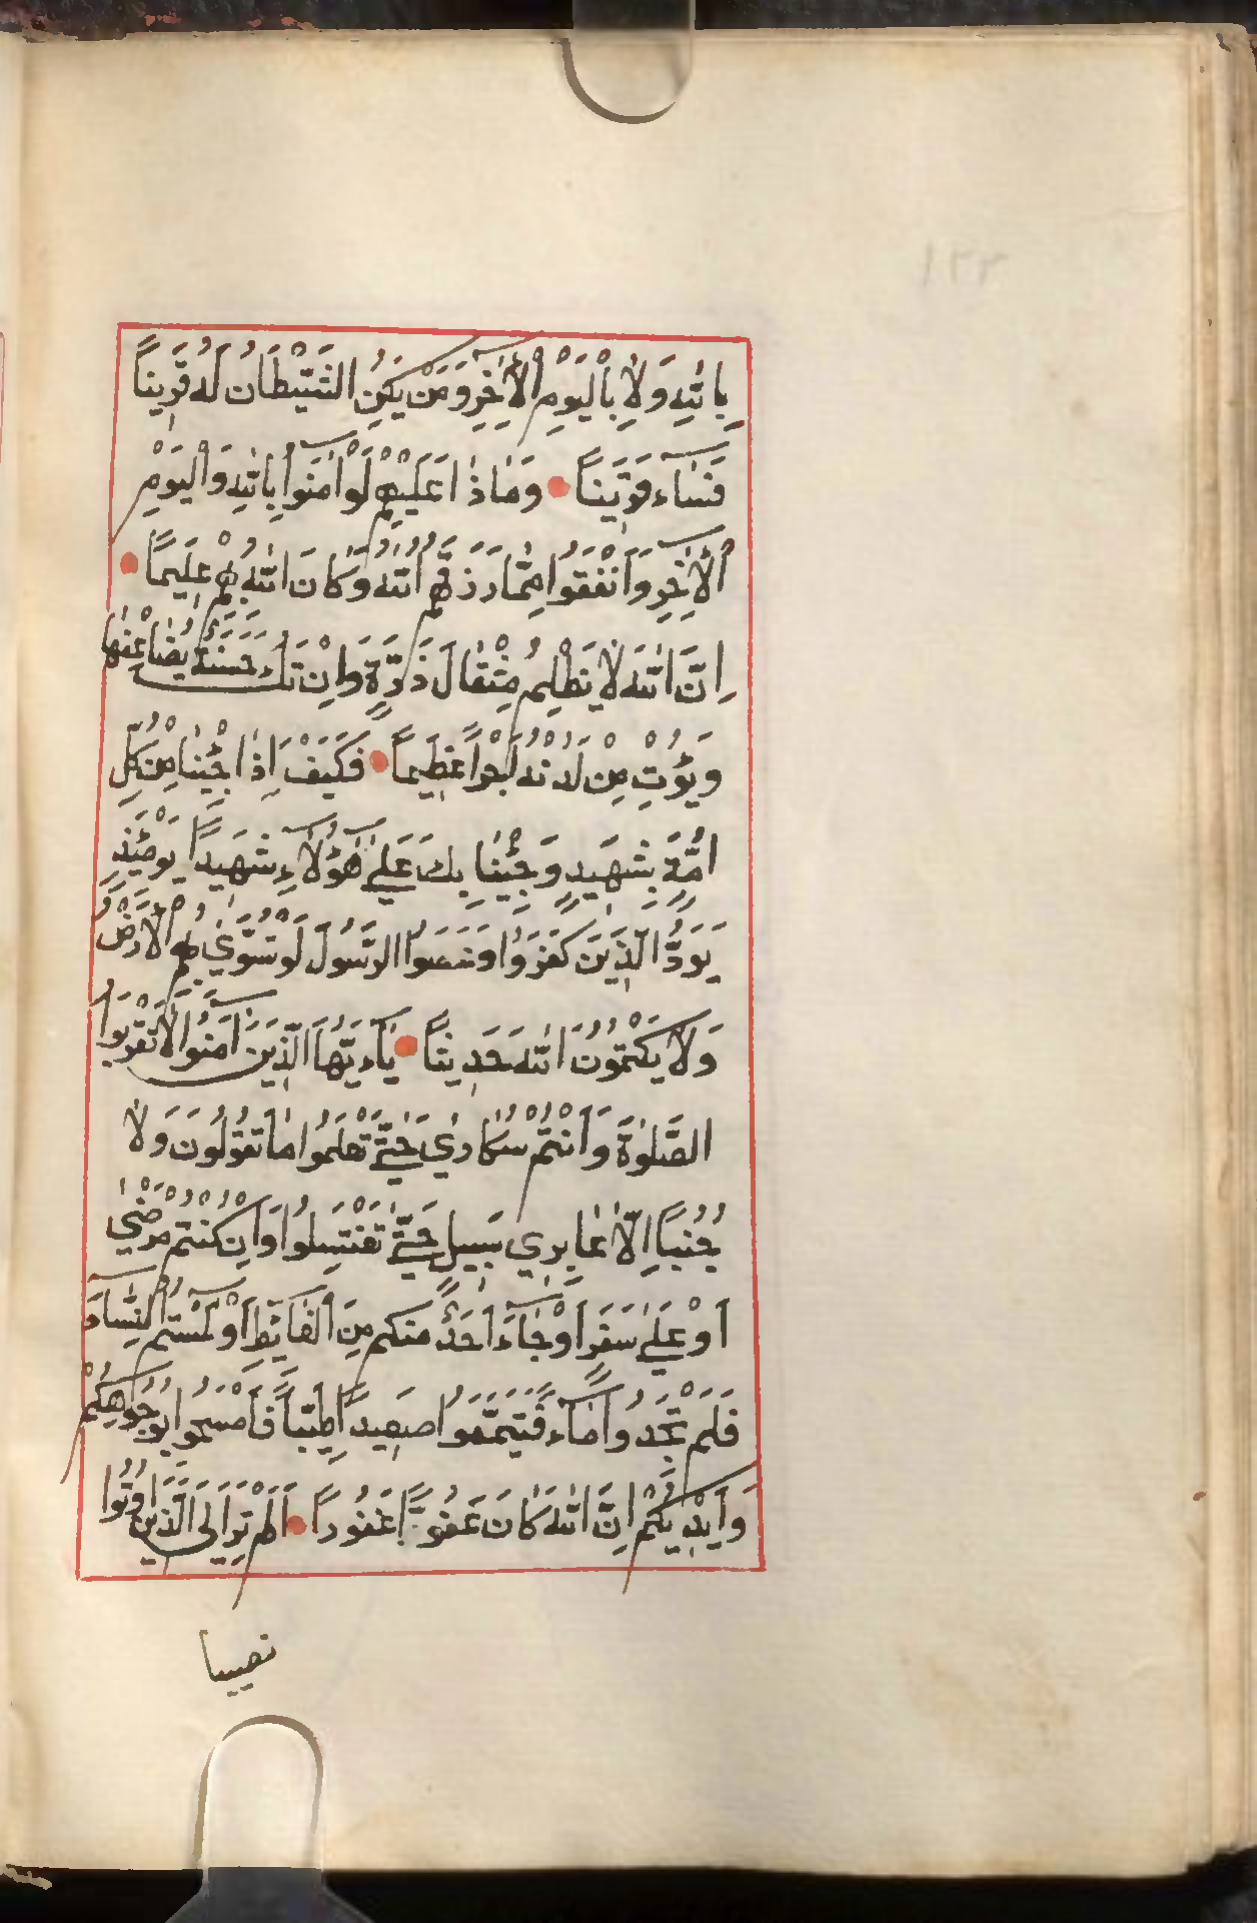 ١٢٢
بِاللّٰهِ وَلَا بِالْيَوْمِ الْاٰخِرِ وَمَنْ يَكُنِ الشَّيْطَانُ لَهُ قَرِينًا
فَسَآءَ قَرِينًا وَمَاذَا عَلَيْهِمْ لَوْ اٰمَنُوا بِاللّٰهِ وَالْيَوْمِ
الْاٰخِرِ وَاَنْفَقُوا مِمَّا رَزَقَهُمُ اللّٰهُ وَكَانَ اللّٰهُ بِهِمْ عَلِيمًا
اِنَّ اللّٰهَ لَا يَظْلِمُ مِثْقَالَ ذَرَّةٍ وَاِنْ تَكُ حَسَنَةً يُضَاعِفْهَا
وَيُؤْتِ مِنْ لَدُنْهُ اَجْرًا عَظِيمًا فَكَيْفَ اِذَا جِئْنَا مِنْ كُلِّ
اُمَّةٍ بِشَهِيدٍ وَجِئْنَا بِكَ عَلٰى هٰٓؤُلَآءِ شَهِيدًا يَوْمَئِذٍ
يَوَدُّ الَّذِينَ كَفَرُوا وَعَصَوُا الرَّسُولَ لَوْ تُسَوّٰى بِهِمُ الْاَرْضُ
وَلَا يَكْتُمُونَ اللّٰهَ حَدِيثًا يَآءَيُّهَا الَّذِينَ اٰمَنُوا لَا تَقْرَبُوا
الصَّلٰوةَ وَاَنْتُمْ سُكَارٰى حَتّٰى تَعْلَمُوا مَا تَقُولُونَ وَلَا
جُنُبًا اِلَّا عَابِرِي سَبِيلٍ حَتّٰى تَغْتَسِلُوا وَاِنْ كُنْتُمْ مَرْضٰى
اَوْ عَلٰى سَفَرٍ اَوْ جَآءَ اَحَدٌ مِنْكُمْ مِنَ الْغَآئِطِ اَوْ لَمَسْتُمُ النِّسَآءَ
فَلَمْ تَجِدُوا مَآءً فَتَيَمَّمُوا صَعِيدًا طَيِّبًا فَامْسَحُوا بِوُجُوهِكُمْ
وَاَيْدِيكُمْ اِنَّ اللّٰهَ كَانَ عَفُوًّا غَفُورًا اَلَمْ تَرَ اِلَى الَّذِينَ اُوتُوا
نصيبا